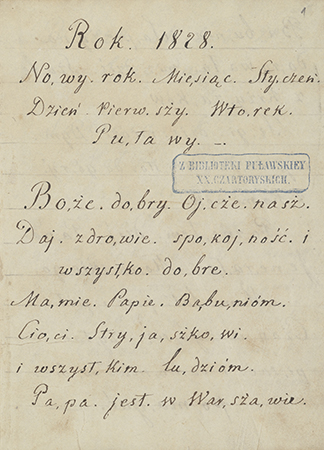 1
Rok. 1828.
No,wy. rok. Mięsiąc. Sty,czeń.
Dzień. Pierw.szy. Wto.rek.
Pu,ła wy. —.
Z BIBLIOTEKI PUŁAWSKIEY
XX. CZARTORYSKICH.
Bo,że. do,bry. Oj,cze. nasz.
Daj. zdro,wie. spo,koj,ność. i
wszyst,ko. do,bre.
Ma,mie. Papie. Bąbu,nióm.
Cio,ci. Stry,ja,szko,wi.
i wszyst,kim. lu,dzióm.
Pa,pa. jest. w War,sza,wie.